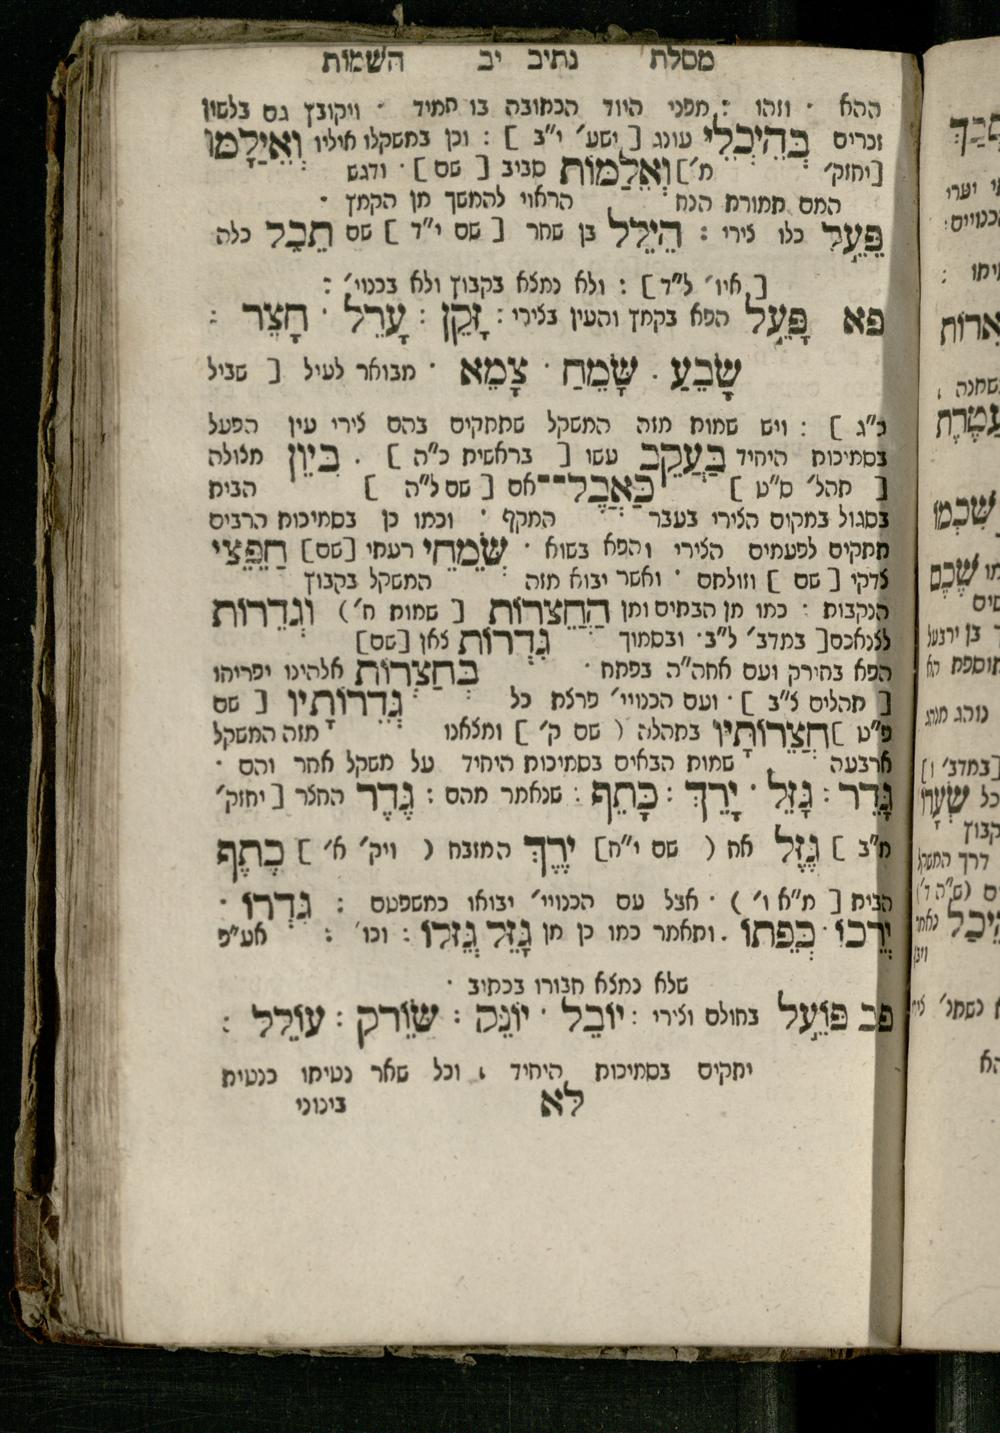 מסלת נתיב יב השמות
ההא · וזהו : מפני היוד הכתובה בו תמיד · ויקובץ גם בלשון
זכרים בְּהֵיכְלֵי עונג [ ישע׳ י״ב ] : וכן במשקלו איליו וְאֵילַמּוֹ
[יחזק׳ מ׳] וְאֵלַמּוֹת סביב [ שם ] · ודגש
המם תמורת הנח הראוי להמשך מן הקמץ ·
פֵּעֵל כלו צירי : הֵילֵל בן שחר [ שם י״ד ] שם תֵבֵל כלה
[ איו׳ ל״ד ] : ולא נמצא בקבוץ ולא בכנוי׳ :
פא פָּעֵל הפא בקמץ והעין בצירי : זָקֵן : עָרֵל · חָצֵר :
שָׂבֵעַ · שָׂמֵחַ · צָמֵא · מבואר לעיל [ שביל
כ״ג ] : ויש שמות מזה המשקל שתתקים בהם צירי עין הפעל
בסמיכות היחיד בַּעֲקֵב עשו [ בראשית כ״ה ] . בִּיוֵן מצולה
[ תהל׳ ס״ט ] כַּאֲבֶל־־אם [ שם ל״ה ] הבית
בסגול במקום הצירי בעבר המקף · וכמו כן בסמיכות הרבים
תתקים לפעמים הצירי והפא בשוא · שְׂמֵחֵי רעתי [שם] חֲפֵצֵי
צדקי [ שם ] וזולתם · ואשר יבוא מזה המשקל בקבוץ
הנקבות : כמו מן הבתים ומן הַחֲצֵרוֹת [ שמות ח׳ ) וְגְדֵרוֹת
לצנאכם[ במדב׳ ל״ב · ובסמוך גִּדְרוֹת צאן [שם]
הפא בחירק ועם אחה״ה בפתח · בְּחַצְרוֹת אלהינו יפריחו
[ תהלים צ״ב ] · ועם הכנויי׳ פרצת כל גְּדֵרוֹתָיו [ שם
פ״ט ] חֲצֵרוֹתָיו בתהלה ( שם ק׳ ] ומצאנו מזה המשקל
ארבעה שמות הבאים בסמיכות היחיד על משקל אחר והם ·
גָּדֵר : גָּזֵל · יָרֵךְ : כָּתֵף : שנאמר מהם : גֶּדֶר החצר [ יחזק׳
מ״ב ] גֶּזֶל אח ( שם י״ח] יֶרֶךְ המזבח ( ויק׳ א׳ ] כֶּתֶף
הבית [ מ״א ו׳ ) · אבל עם הכנויי׳ יבואו כמשפטם : גְּדֵרוֹ ·
יְרֵכוֹ · כְּפֵתוֹ . ותאמר כמו כן מן גָּזֵל גְּזֵלוֹ : וכו׳ : אע״פ
שלא נמצא חבורו בכתיב ·
פב פּוֹעֵל בחולם וצירי : יוֹבֵל · יוֹנֵק : שׂוֹרֵק : עוֹלֵל :
יתקים בסמיכות היחיד , וכל שאר נטיתו כנטית
לא בינוני